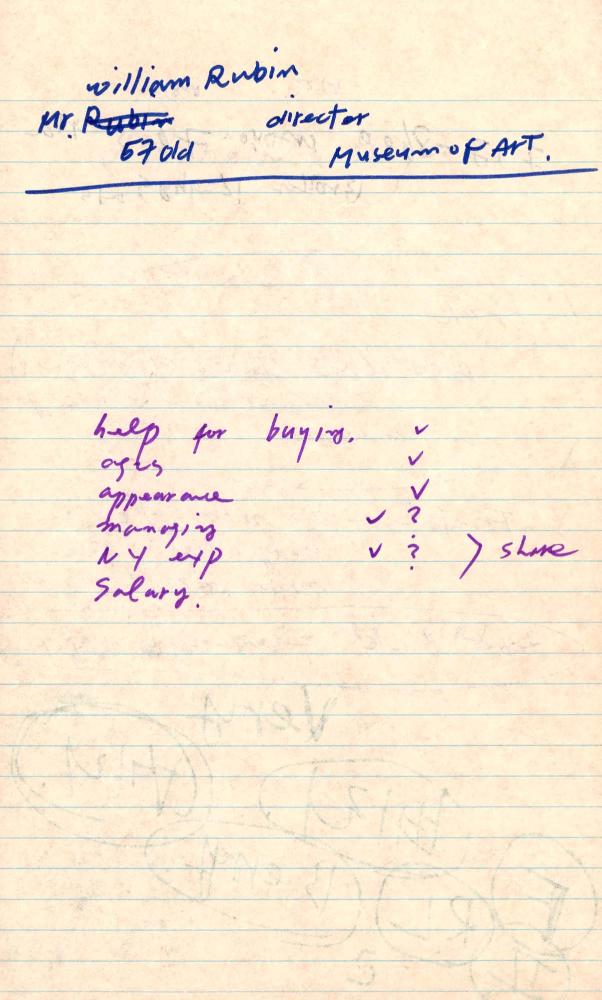 William Rubin
Mr. Rubin director
57 old Museum of Art.
help for buying. ✓
ages ✓
appearance ✓
managing ✓ ?
NY exp ✓ ? > share
Salary.